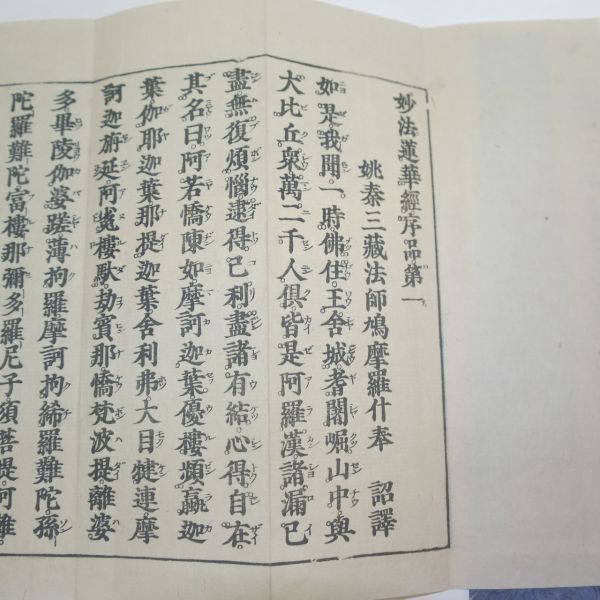 妙法蓮華經序品第一
姚秦三藏法師鳩摩羅什奉　詔譯
如是我聞一時佛住王舍城耆闍崛山中與
大比丘衆萬二千人俱皆是阿羅漢諸漏已
盡無復煩惱逮得己利盡諸有結心得自在
其名曰阿若憍陳如摩訶迦葉優樓頻蠃迦
葉伽耶迦葉那提迦葉舍利弗大目犍連摩
訶迦旃延阿㝹樓馱劫賓那憍梵波提離婆
多畢陵伽婆蹉薄拘羅摩訶拘絺羅難陀孫
陀羅難陀富樓那彌多羅尼子須菩提阿難